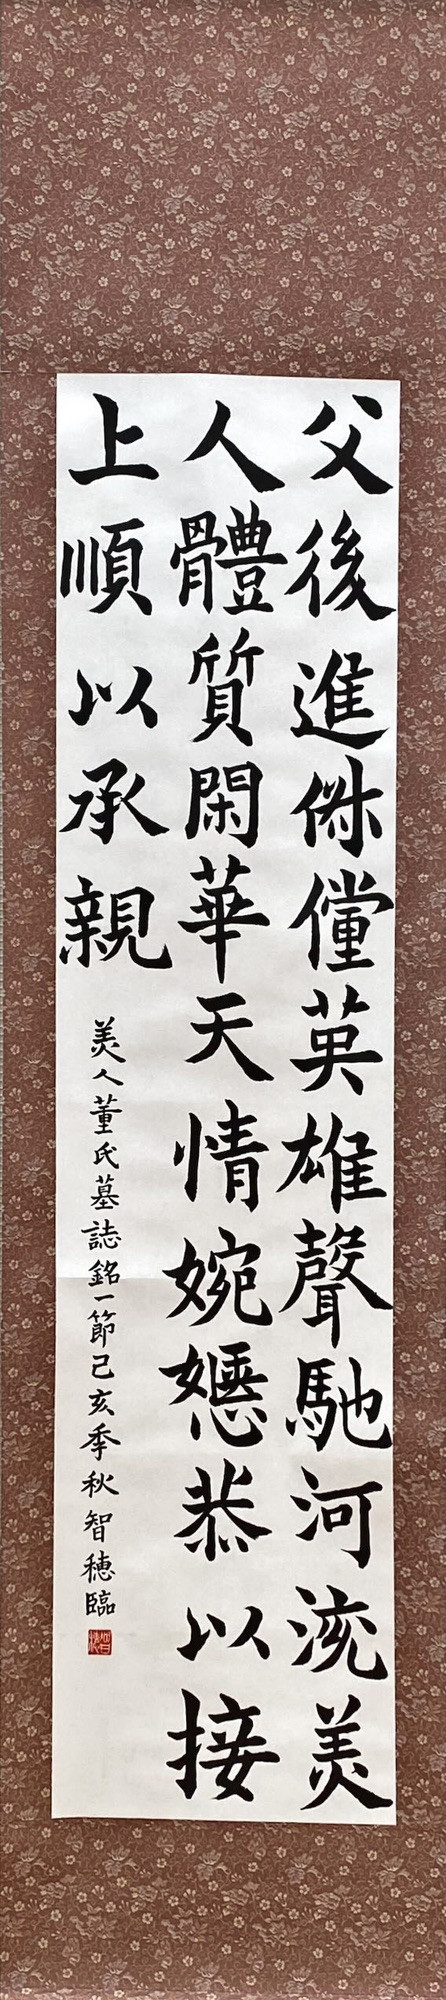 父後進俶儻英雄聲馳河渷美
人體質閑華天情婉嫕恭以接
上順以承親
美人董氏墓誌銘一節己亥季秋智穂臨